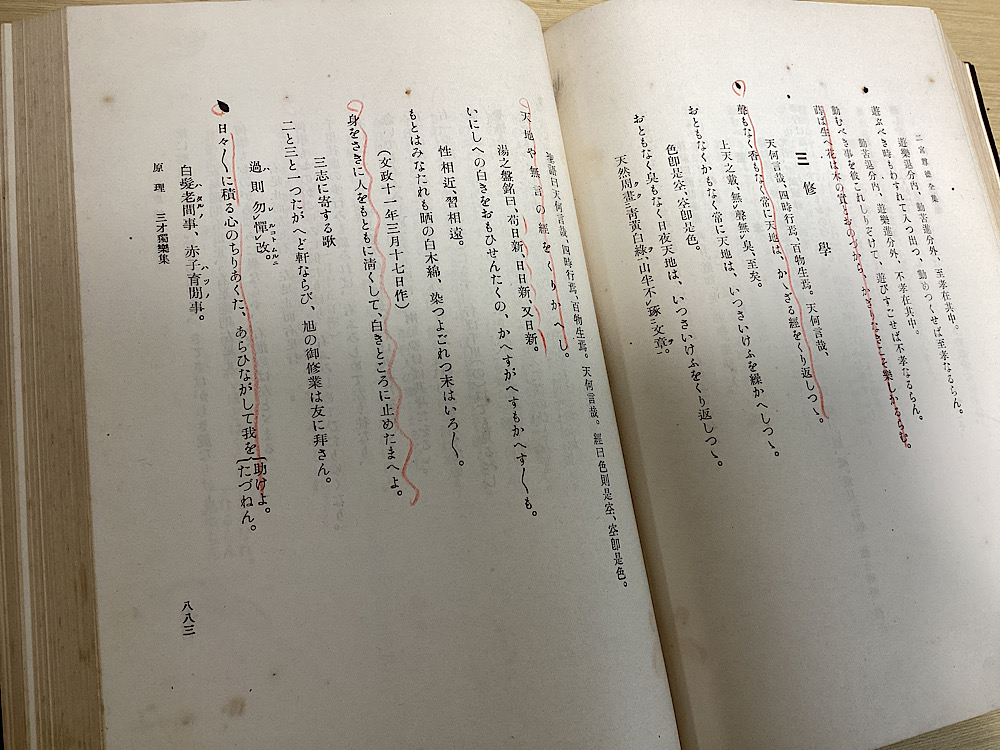 二宮尊德全集
勤苦進分外、至孝在其中。
遊樂退分內、勤苦進分外、至孝在其中。
遊樂退分內、勤めつくせば至孝なるらん。
遊ぶべき時もわすれて人つ出つ、
勤苦退分內、遊樂進分外、不孝在其中。
勤むべき事を彼これしりぞけて、遊びすごせば不孝なるらん。
蒔ば生へ花は木の實とおのづから、かぎりなきこそ樂しかるらむ。
三 修學
天何言哉、四時行焉、百物生焉。天何言哉、
聲もなく香もなく常に天地は、かゝざる經をくり返しつゝ。
上天之載、無レ聲無レ臭、至矣。
おともなくかもなく常に天地は、いつさいけふを繰かへしつゝ。
色卽是空、空卽是色。
おともなく臭もなく日夜天地は、いつさいけふをくり返しつゝ。
天然周畫ニ靑黃白綠、山半不レ琢ニ文章一。
論語曰天何言哉、四時行焉、百物生焉。天何言哉。經曰色則是空、空卽是色。
天地や無言の經をくりかへし。
湯之盤銘曰、苟日新、日日新、又日新。
いにしへの白きをおもひせんたくの、かへすがへすもかへす〴〵も。
性相近、習相遠。
もとはみなたれも晒の白木綿、染つよごれつ末はいろ〳〵。
(文政十一年三月十七日作)
身をさきに人をもともに淸くして、白きところに止めたまへよ。
三志に寄する歌
二と三と一つたがへど軒ならび、旭の御修業は友に拜さん。
過則勿レ憚ルコトムルニ改。
日々〳〵に積る心のちりあくた、あらひながして我を{助けよ。 たづねん。
白髮老間事、赤子育間事。
原理 三才獨樂集
八八三